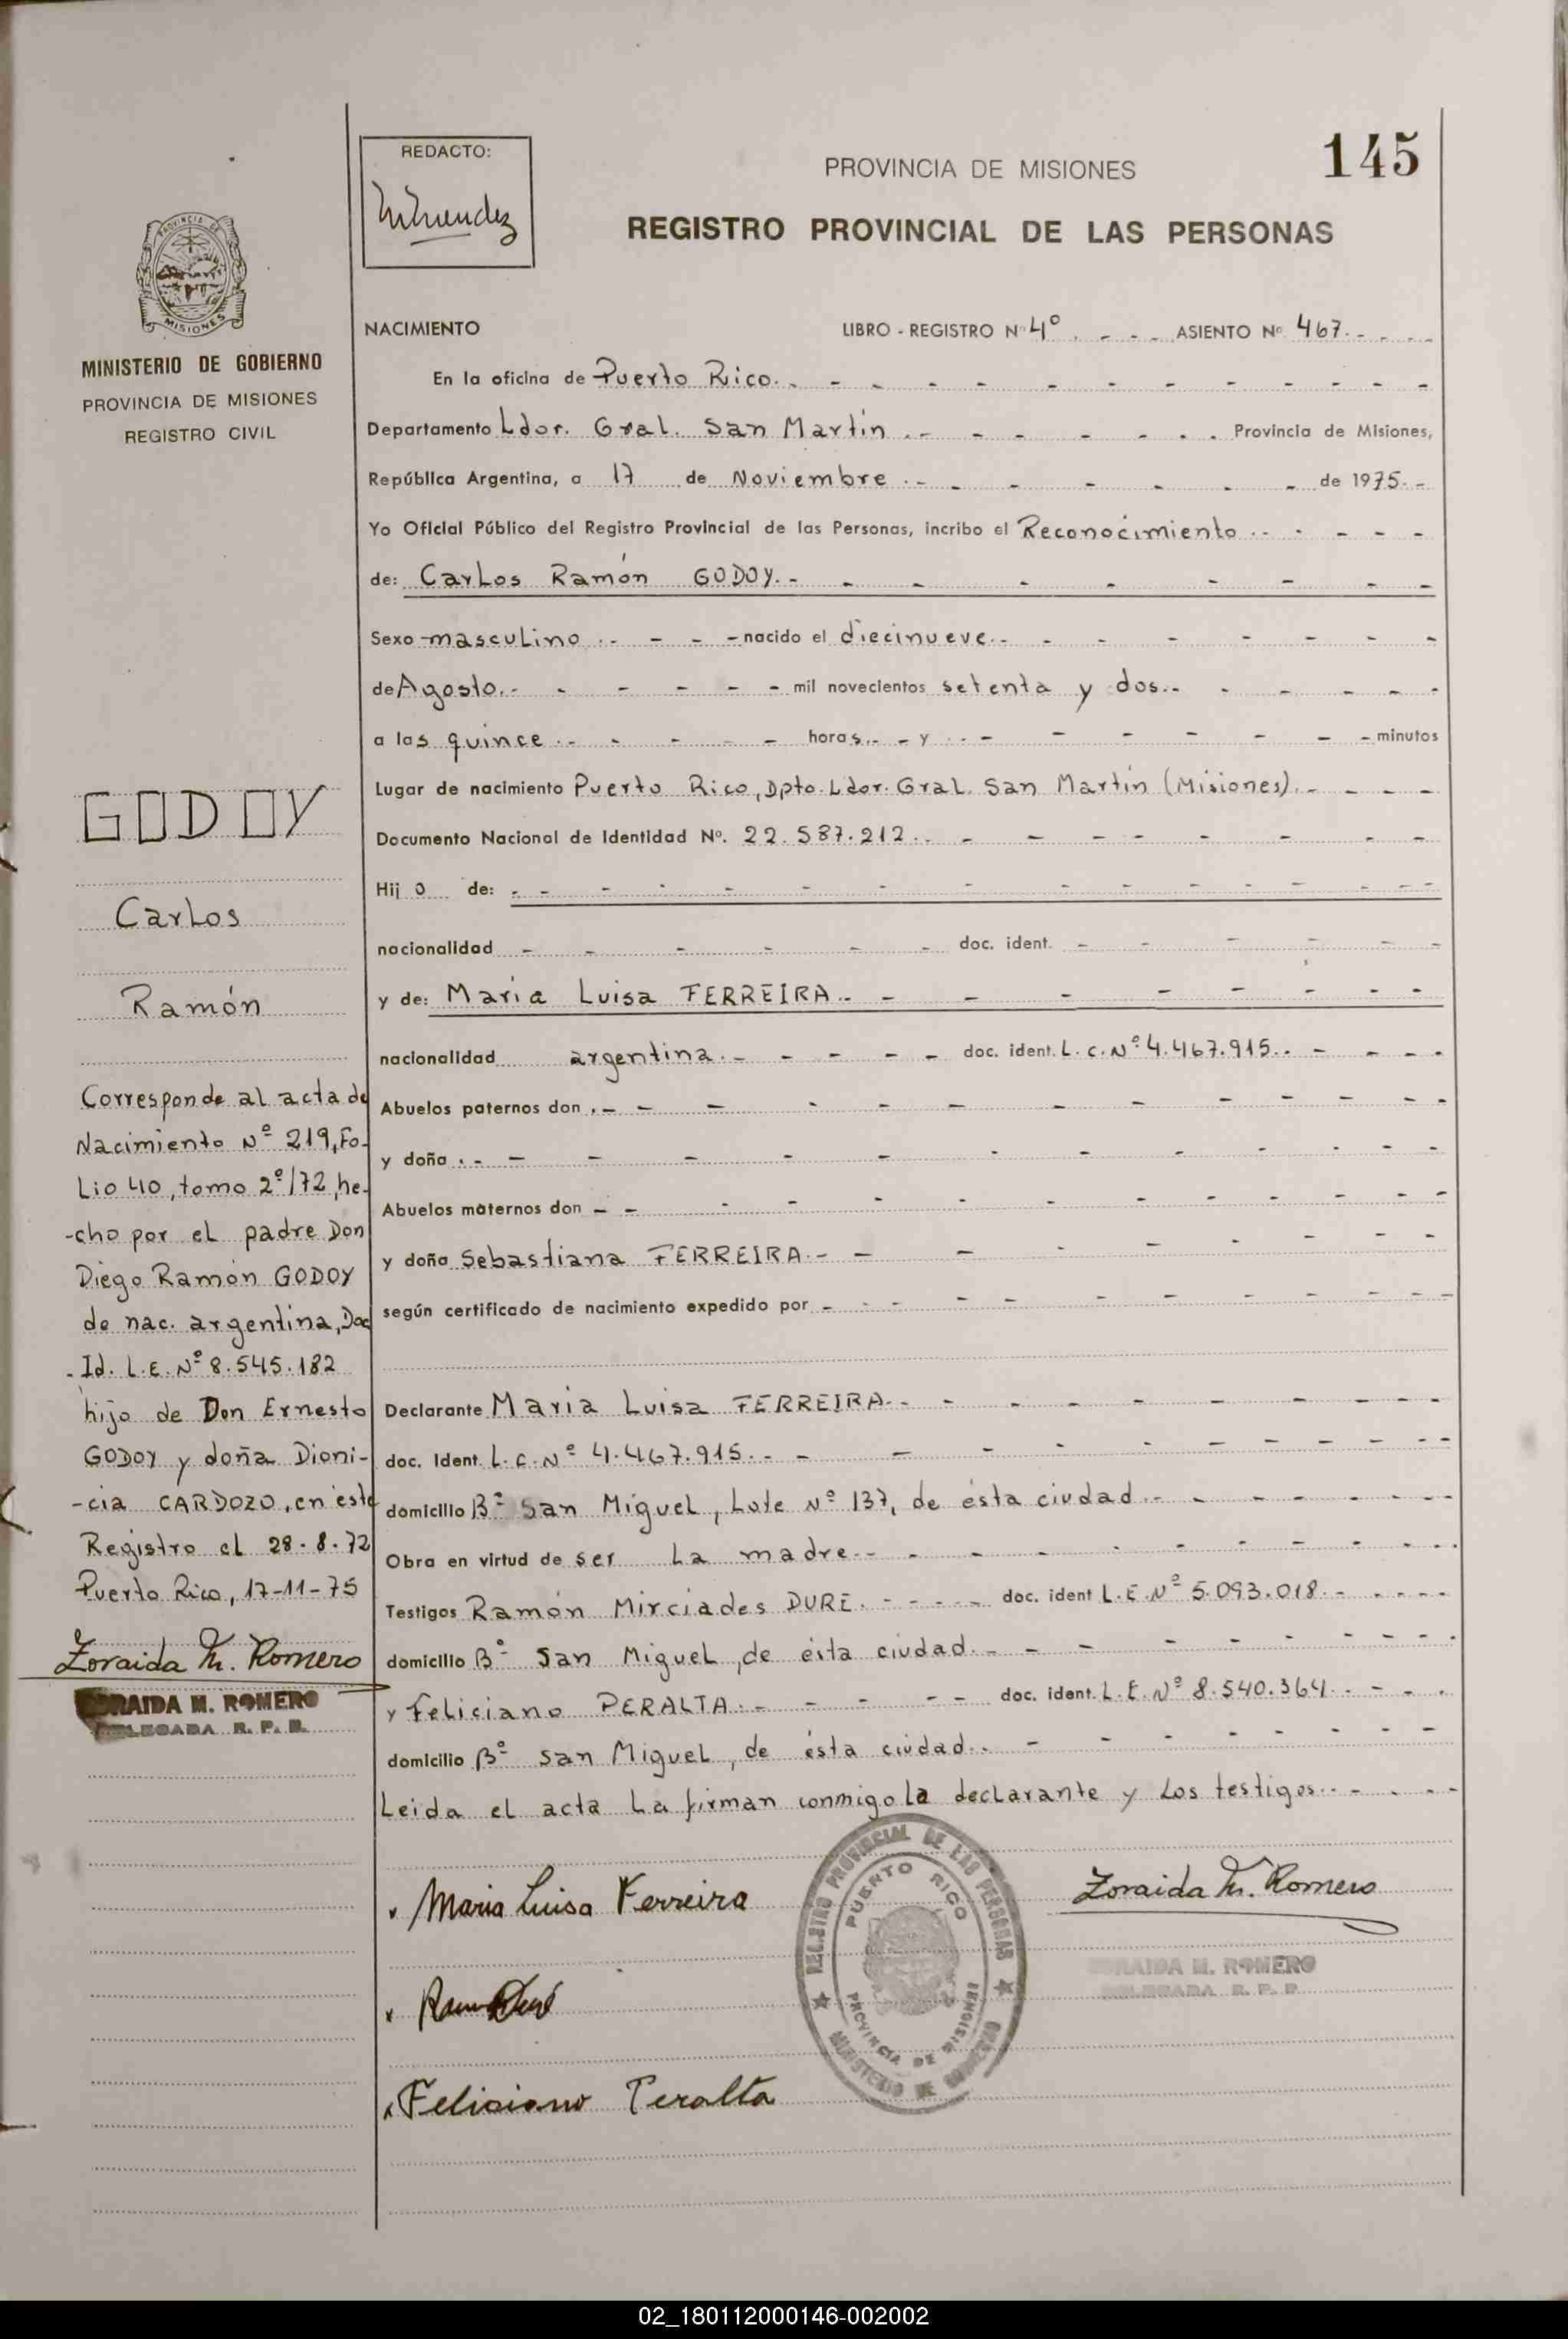 145
REDACTO:
PROVINCIA DE MISIONES
REGISTRO PROVINCIAL DE LAS PERSONAS
PROVINCIA DE
MISIONES
MINISTERIO DE GOBIERNO
PROVINCIA DE MISIONES
REGISTRO CIVIL
GODOY
Carlos
Ramón
Corresponde al acta de
Nacimiento Nº 219, Fo-
Lio 40, tomo 2º/72, he-
-cho por el padre Don
Diego Ramón GODOY
de nac. argentina, Doc
Id. L.E. Nº 8.545.182
hijo de Don Ernesto
GODOY y doña Dioni-
-cia CARDOZO, en éste
Registro el 28-8-72
Puerto Rico, 17-11-75
Zoraida M. Romero
ZORAIDA M. ROMERO
DELEGADA R. P. P.
NACIMIENTO LIBRO - REGISTRO Nº 4º . - - - ASIENTO Nº 467. - - - -
En la oficina de Puerto Rico. - - - - - - - - - - - -
Departamento Ldor. Gral. San Martín . - - - - - - - . Provincia de Misiones,
República Argentina, a 17 de Noviembre . - - - - - - - de 1975. -
Yo Oficial Público del Registro Provincial de las Personas, incribo el Reconocimiento . - - - - -
de: Carlos Ramón GODOY. - - - - - - - - -
Sexo masculino . - - - - nacido el diecinueve. - - - - - - - -
de Agosto. - - - - - - mil novecientos setenta y dos. - - - - - -
a las quince . - - - - - horas. - - y . - - - - - - - - minutos
Lugar de nacimiento Puerto Rico, Dpto. Ldor. Gral. San Martín (Misiones). - - - -
Documento Nacional de Identidad Nº. 22.587.212. - - - - - - - - -
Hijo de: - - - - - - - - - - - - -
nacionalidad - - - - - - doc. ident. - - - - - -
y de: Maria Luisa FERREIRA. - - - - - - - - -
nacionalidad argentina. - - - - - doc. ident. L.C. Nº 4.467.915. - - - -
Abuelos paternos don . - - - - - - - - - - - - -
y doña . - - - - - - - - - - - - -
Abuelos maternos don - - - - - - - - - - - -
y doña Sebastiana FERREIRA. - - - - - - - - -
según certificado de nacimiento expedido por - - - - - - - - - - - -
Declarante Maria Luisa FERREIRA. - - - - - - - - -
doc. Ident. L.C. Nº 4.467.915. - - - - - - - - - - -
domicilio Bº San Miguel, Lote Nº 137, de ésta ciudad. - - - - - - - -
Obra en virtud de ser La madre. - - - - - - - - - - -
Testigos Ramón Mirciades DURE. - - - - - doc. ident L.E. Nº 5.093.018. - - - - -
domicilio Bº San Miguel, de ésta ciudad. - - - - - - - - - -
y Feliciano PERALTA. - - - - - - doc. ident. L.E. Nº 8.540.364. - - - -
domicilio Bº San Miguel, de ésta ciudad. - - - - - - - - -
Leida el acta La firman conmigo la declarante y Los testigos. - - - - -
Maria Luisa Ferreira
Zoraida M. Romero
ZORAIDA M. ROMERO
DELEGADA R. P. P.
REGISTRO PROVINCIAL DE LAS PERSONAS
PUERTO RICO
PROVINCIA DE MISIONES
MINISTERIO DE GOBIERNO
Feliciano Peralta
02_180112000146-002002